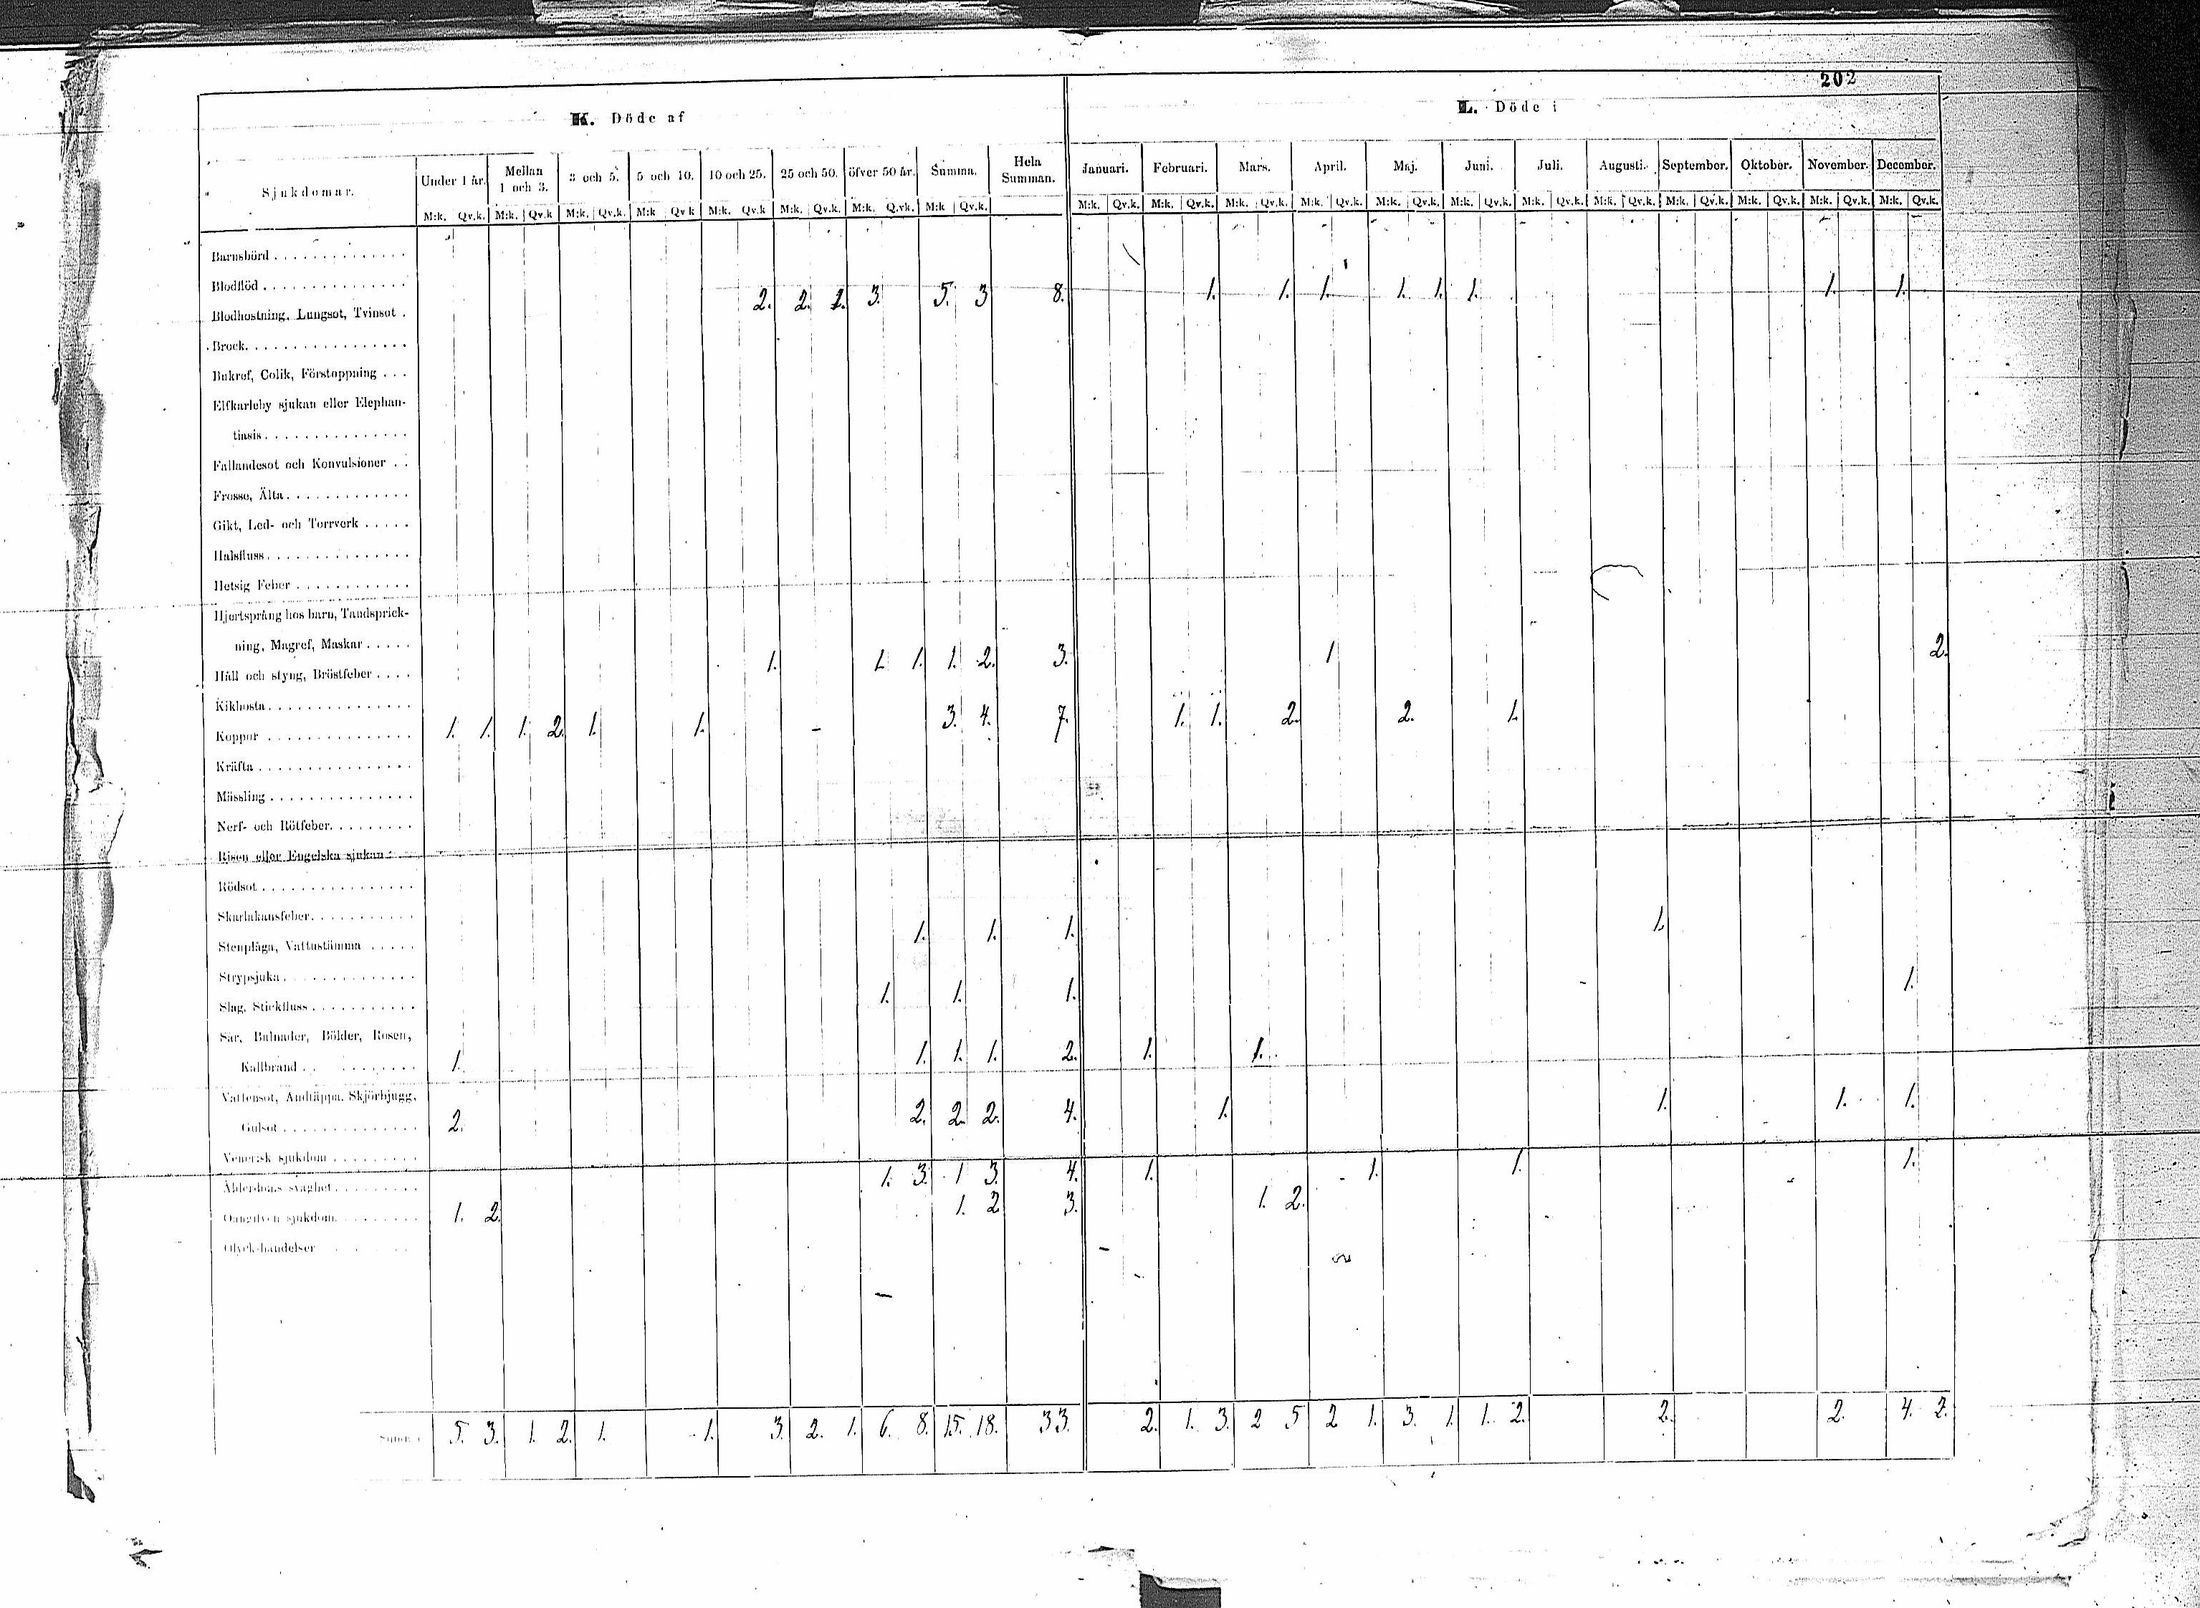 202
K. Döde af
L. Döde i
Sjukdomar. Under 1 år. Mellan 1 och 3. 3 och 5. 5 och 10. 10 och 25. 25 och 50. öfver 50 år. Summa. Hela Summan. Januari. Februari. Mars. April. Maj. Juni. Juli. Augusti. September. Oktober. November. December.
M:k. Qv.k. M:k. Qv.k M:k. Qv.k. M:k Qv k M:k. Qv.k M:k. Qv.k. M:k. Qv.k. M:k Qv.k. M:k. Qv.k. M:k. Qv.k. M:k. Qv.k. M:k. Qv.k. M:k. Qv.k. M:k. Qv.k. M:k. Qv.k. M:k. Qv.k. M:k. Qv.k. M:k. Qv.k. M:k. Qv.k. M:k. Qv.k.
Barnsbörd
Blodflöd
Blodhostning, Lungsot, Tvinsot 2. 2. 1. 3. 5. 3 8. 1. 1. 1. 1. 1. 1. 1. 1.
Brock
Bukref, Colik, Förstoppning
Elfkarleby sjukan eller Elephan-
tiasis
Fallandesot och Konvulsioner
Frosse, Älta
Gikt, Led- och Torrverk
Halsfluss
Hetsig Feber
Hjertsprång hos barn, Tandsprick-
ning, Magref, Maskar
Håll och styng, Bröstfeber 1. 1. 1. 1. 2. 3. 1 2.
Kikhosta
Koppor 1. 1. 1. 2. 1. 1. 3. 4. 7. 1. 1. 2. 2. 1.
Kräfta
Mässling
Nerf- och Rötfeber
Risen eller Engelska sjukan
Rödsot
Skarlakansfeber
Stenplåga, Vattustämma 1. 1. 1. 1.
Strypsjuka
Slag, Stickfluss 1. 1. 1. 1.
Sår, Bulnader, Bölder, Rosen,
Kallbrand 1. 1. 1. 1. 2. 1. 1.
Vattensot, Andtäppa, Skjörbjugg,
Gulsot 2. 2. 2. 2. 4. 1. 1. 1. 1.
Venerisk sjukdom
Ålderdoms svaghet 1. 3. 1 3. 4. 1. 1. 1. 1.
Oangifven sjukdom 1. 2. 1. 2 3. 1. 2.
Olyckshändelser
Summa 5. 3. 1. 2. 1. 1. 3. 2. 1. 6. 8. 15. 18. 33. 2. 1. 3. 2 5 2 1. 3. 1. 1. 2. 2. 2. 4. 2.